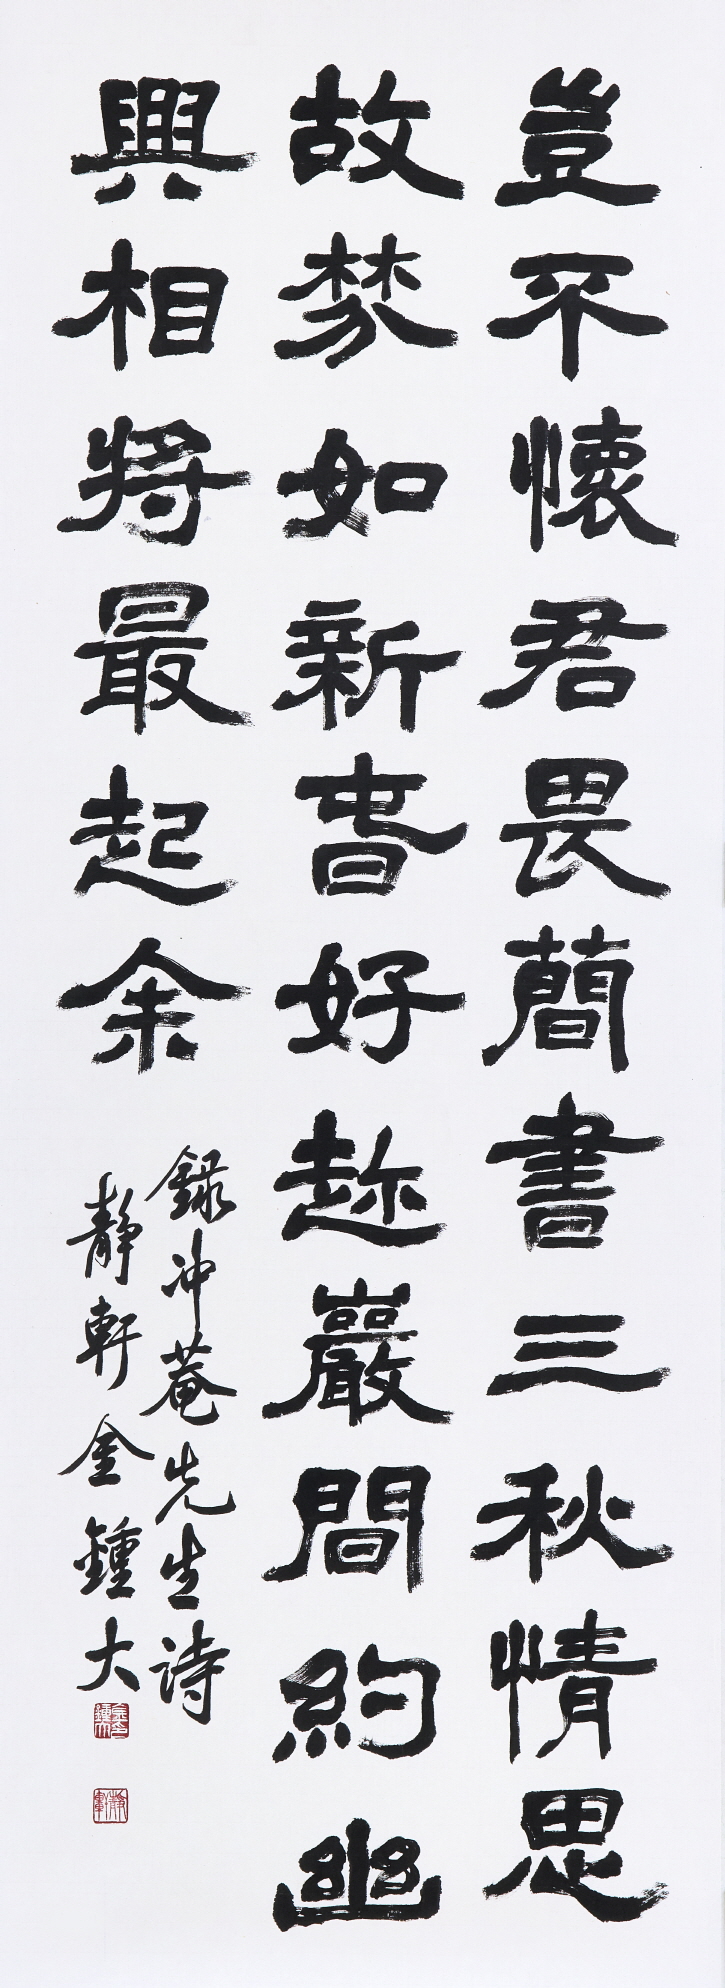 豈不懷君畏簡書三秋情思
故棼如新旾好趂巖間約幽
興相將最起余
錄冲菴先生詩
靜軒金鍾大